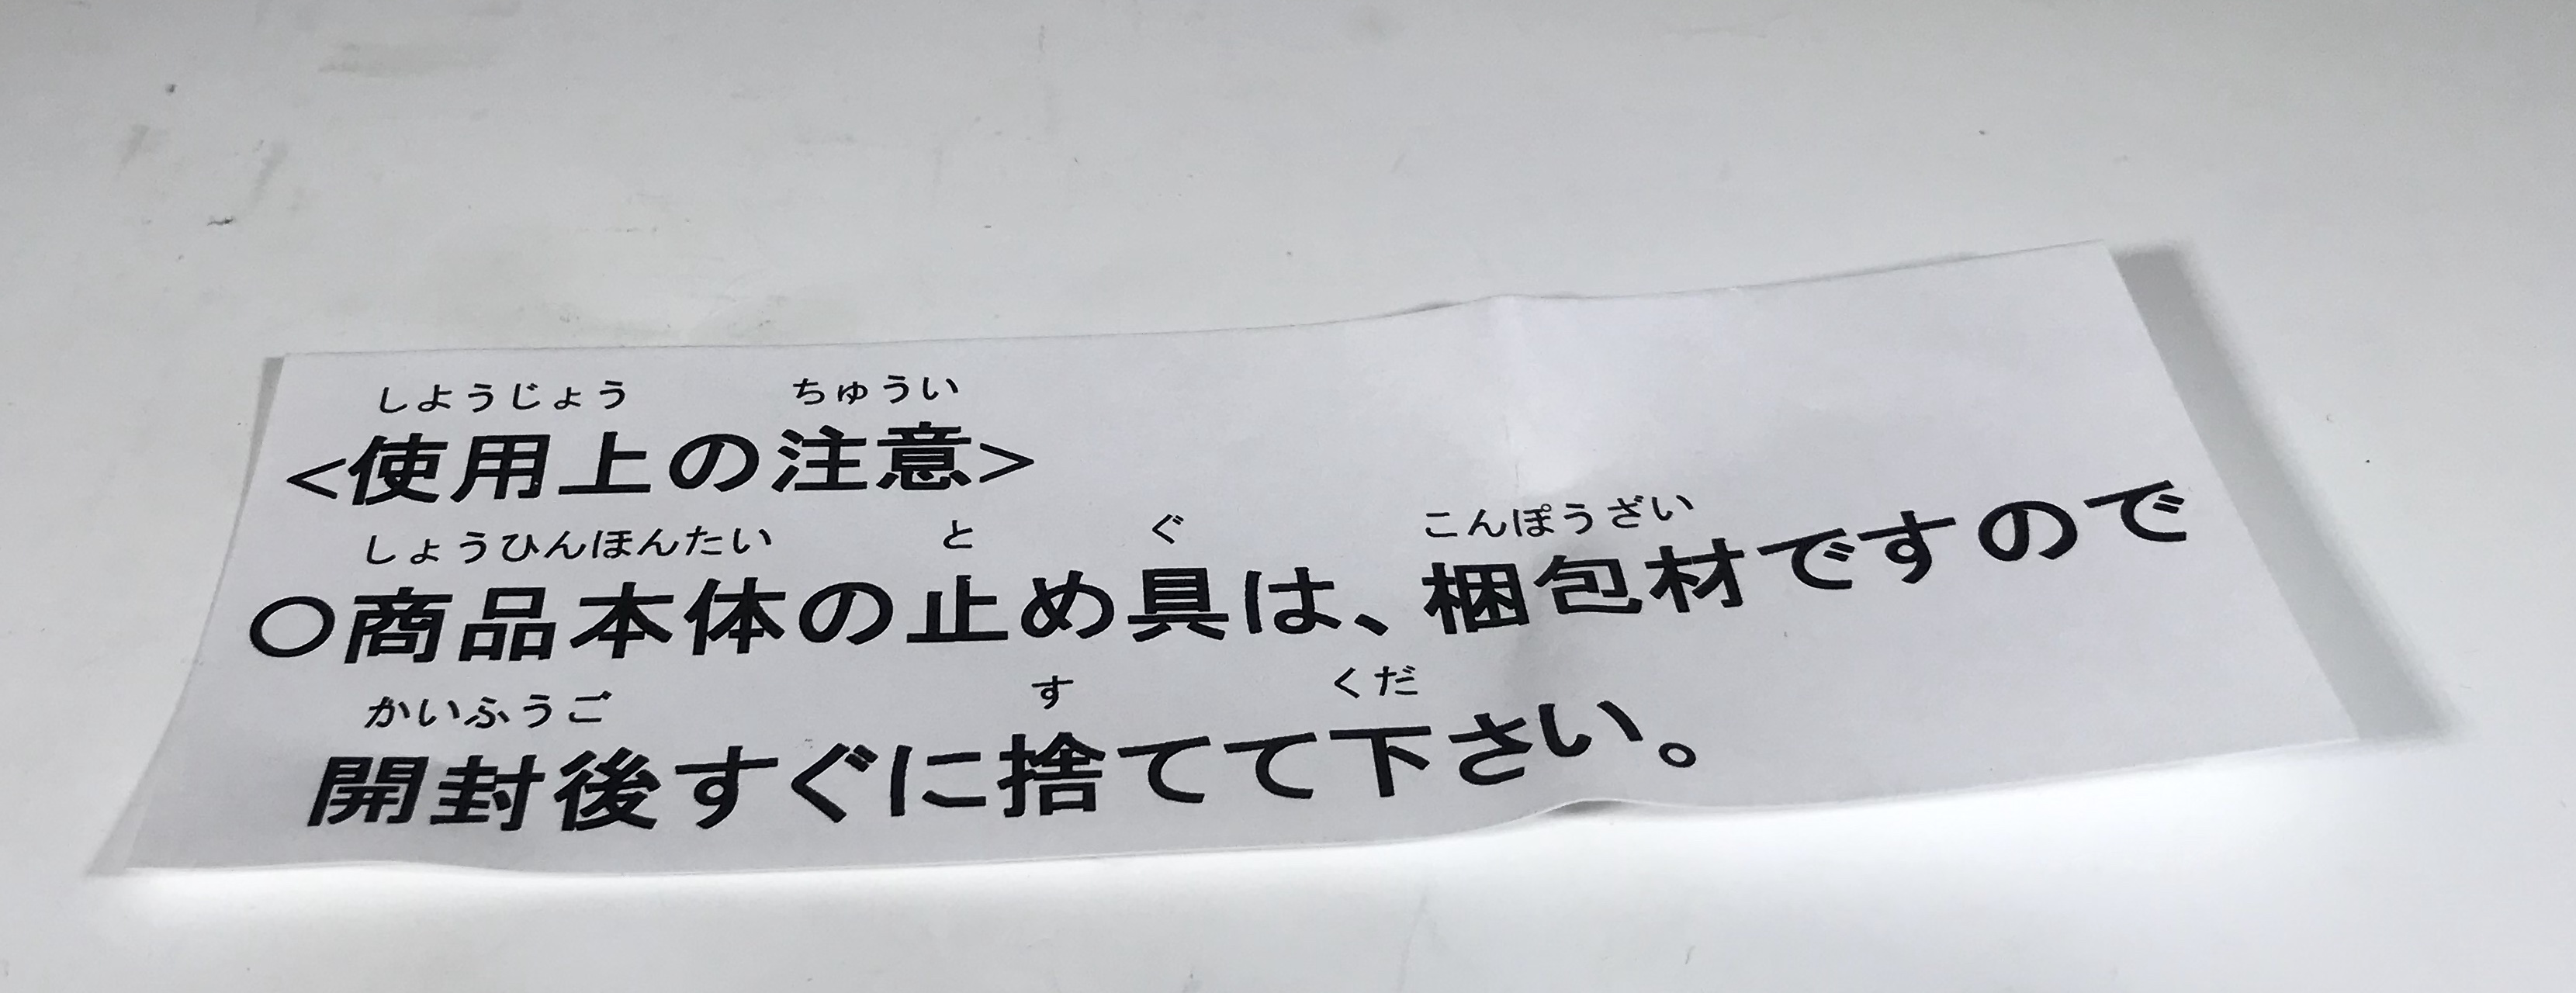 しようじょう ちゅうい
<使用上の注意>
しょうひんほんたい と ぐ こんぽうざい
○商品本体の止め具は、梱包材ですので
かいふうご す くだ
開封後すぐに捨てて下さい。